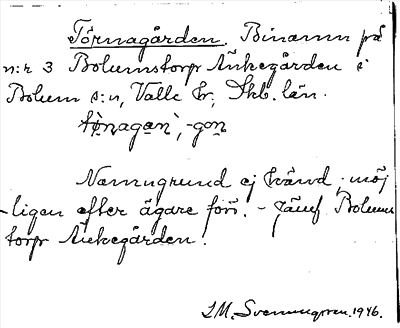 Törnagården. Binamn på
n:r 3 Bolumstorp Änkegården i
Bolum s:n, Valle hr, Skb. län.
tö̀nagaṇ, -goṇ
Namngrund ej känd, möj
-ligen efter ägare förr. - Jämf Bolums
torp Änkegården.
I.M. Svenungsson. 1946.